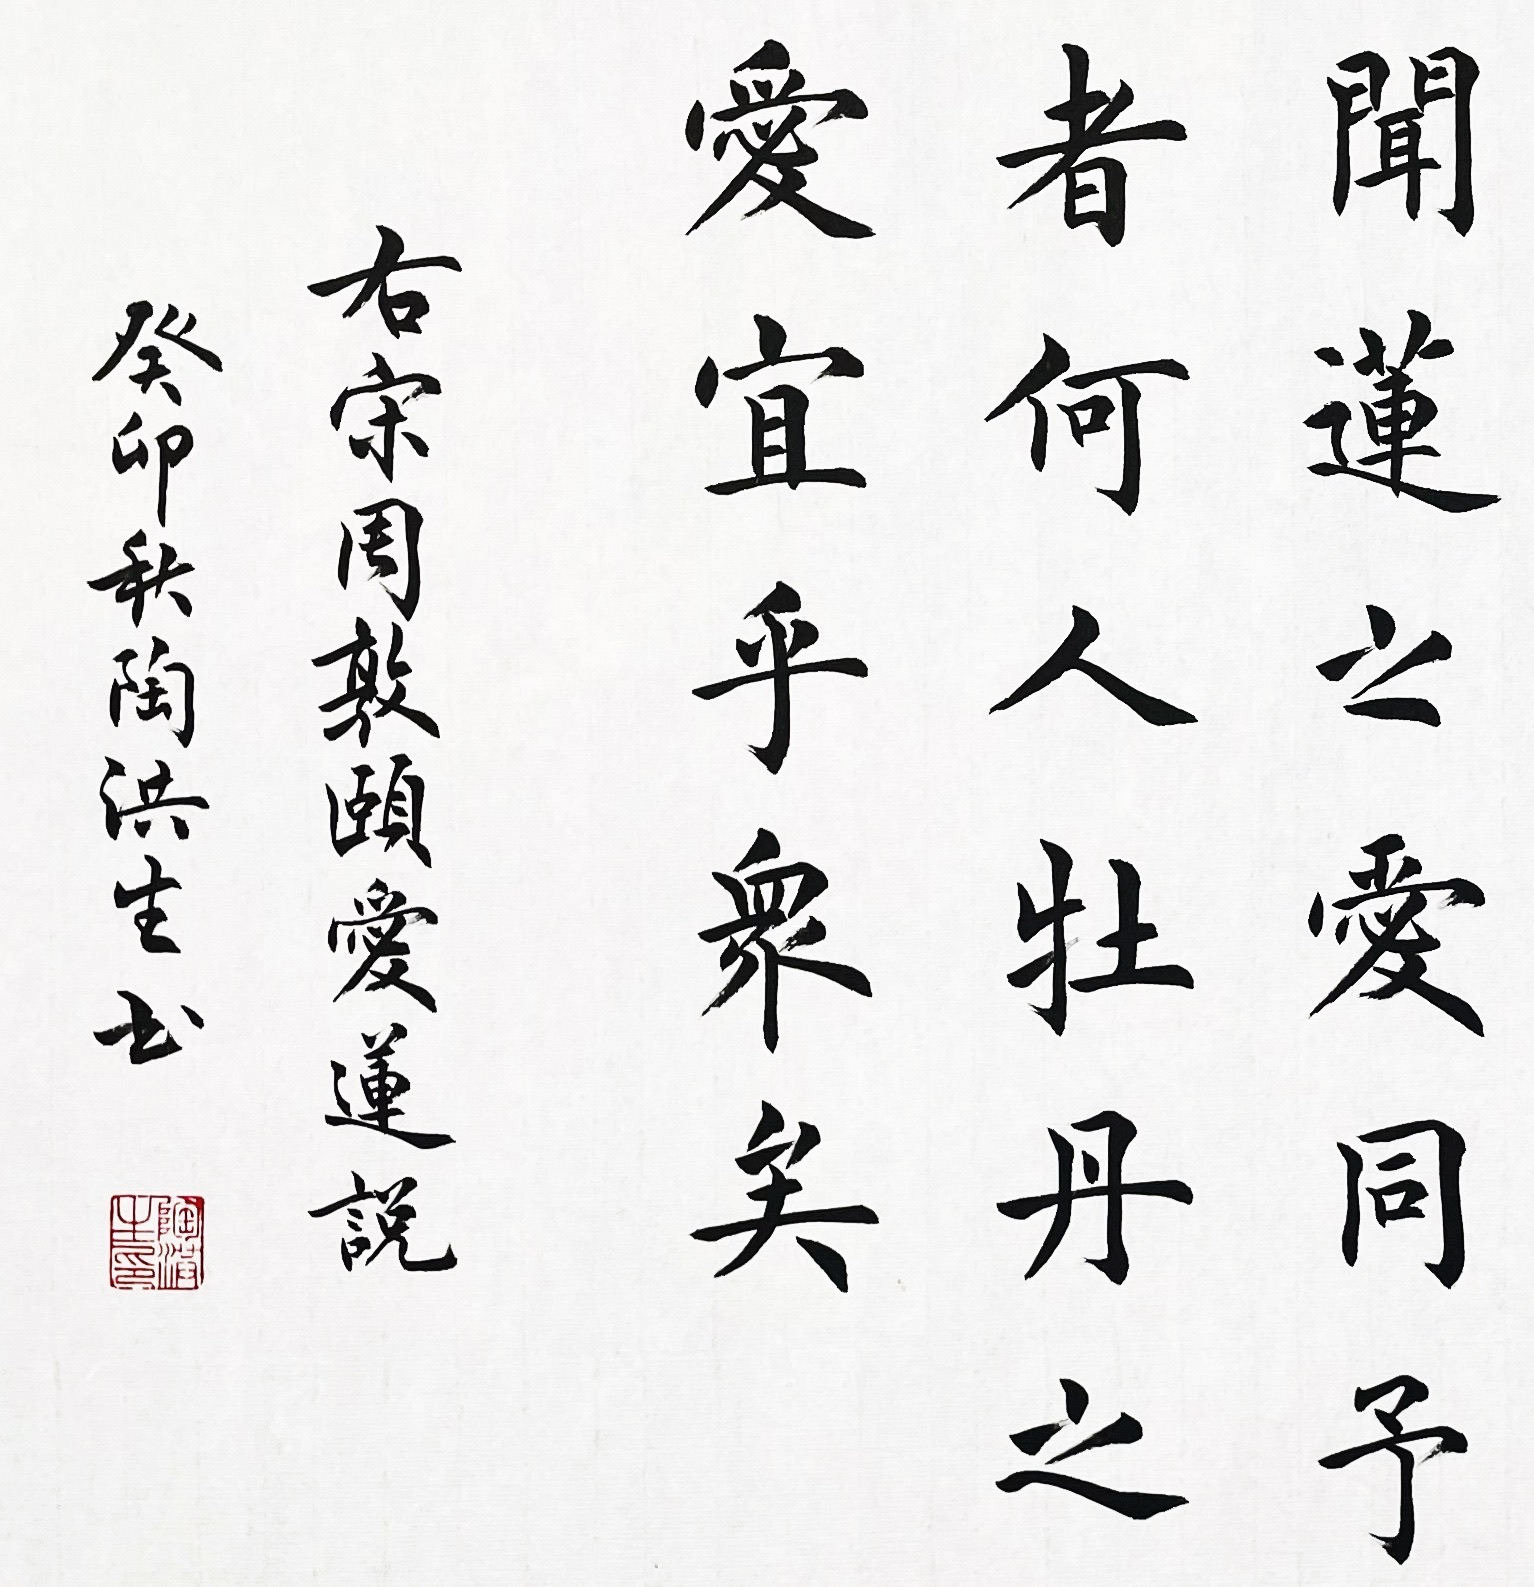 聞蓮之愛同予
者何人牡丹之
愛宜乎衆矣
右宋周敦頤愛蓮説
癸卯秋陶洪生书
陶洪生印